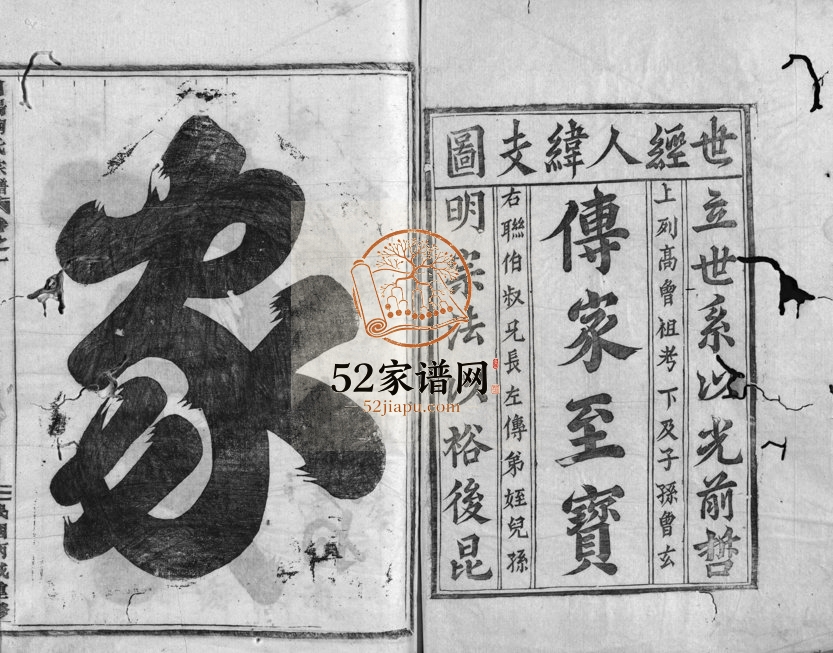 世經人緯支圖
立世系以光前哲
上列高曾祖考下及子孫曾玄
傳家至寶
右聯伯叔兄長左傳弟姪兒孫
明宗法以裕後昆
家
52家谱网
52jiapu.com